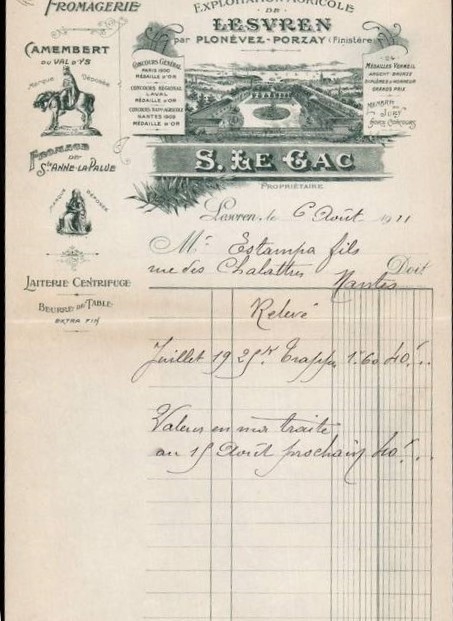 FROMAGERIE
EXPLOITATION AGRICOLE
DE
LESVREN
par PLONÉVEZ-PORZAY (Finistère)
CAMEMBERT
DU VAL D'YS
MARQUE DÉPOSÉE
FROMAGE
DE
Ste ANNE-LA-PALUE
MARQUE DÉPOSÉE
LAITERIE CENTRIFUGE
BEURRE DE TABLE
EXTRA FIN
CONCOURS GÉNÉRAL
PARIS
MÉDAILLE D'OR
CONCOURS RÉGIONAL
LAVAL
MÉDAILLE D'OR
NANTES
MÉDAILLE D'OR
24
MÉDAILLES VERMEIL
ARGENT BRONZE
DIPLÔMES D'HONNEUR
GRANDS PRIX
MEMBRE
DU
JURY
HORS CONCOURS
S. LE GAC
PROPRIÉTAIRE
Lesvren, le 6 Août 1911
Mr Estampa fils
rue des Doit
Nantes
Relevé
Juillet 19 25k Trappe 1.60 40
Valeur en ma traite
au 15 Août prochain 40